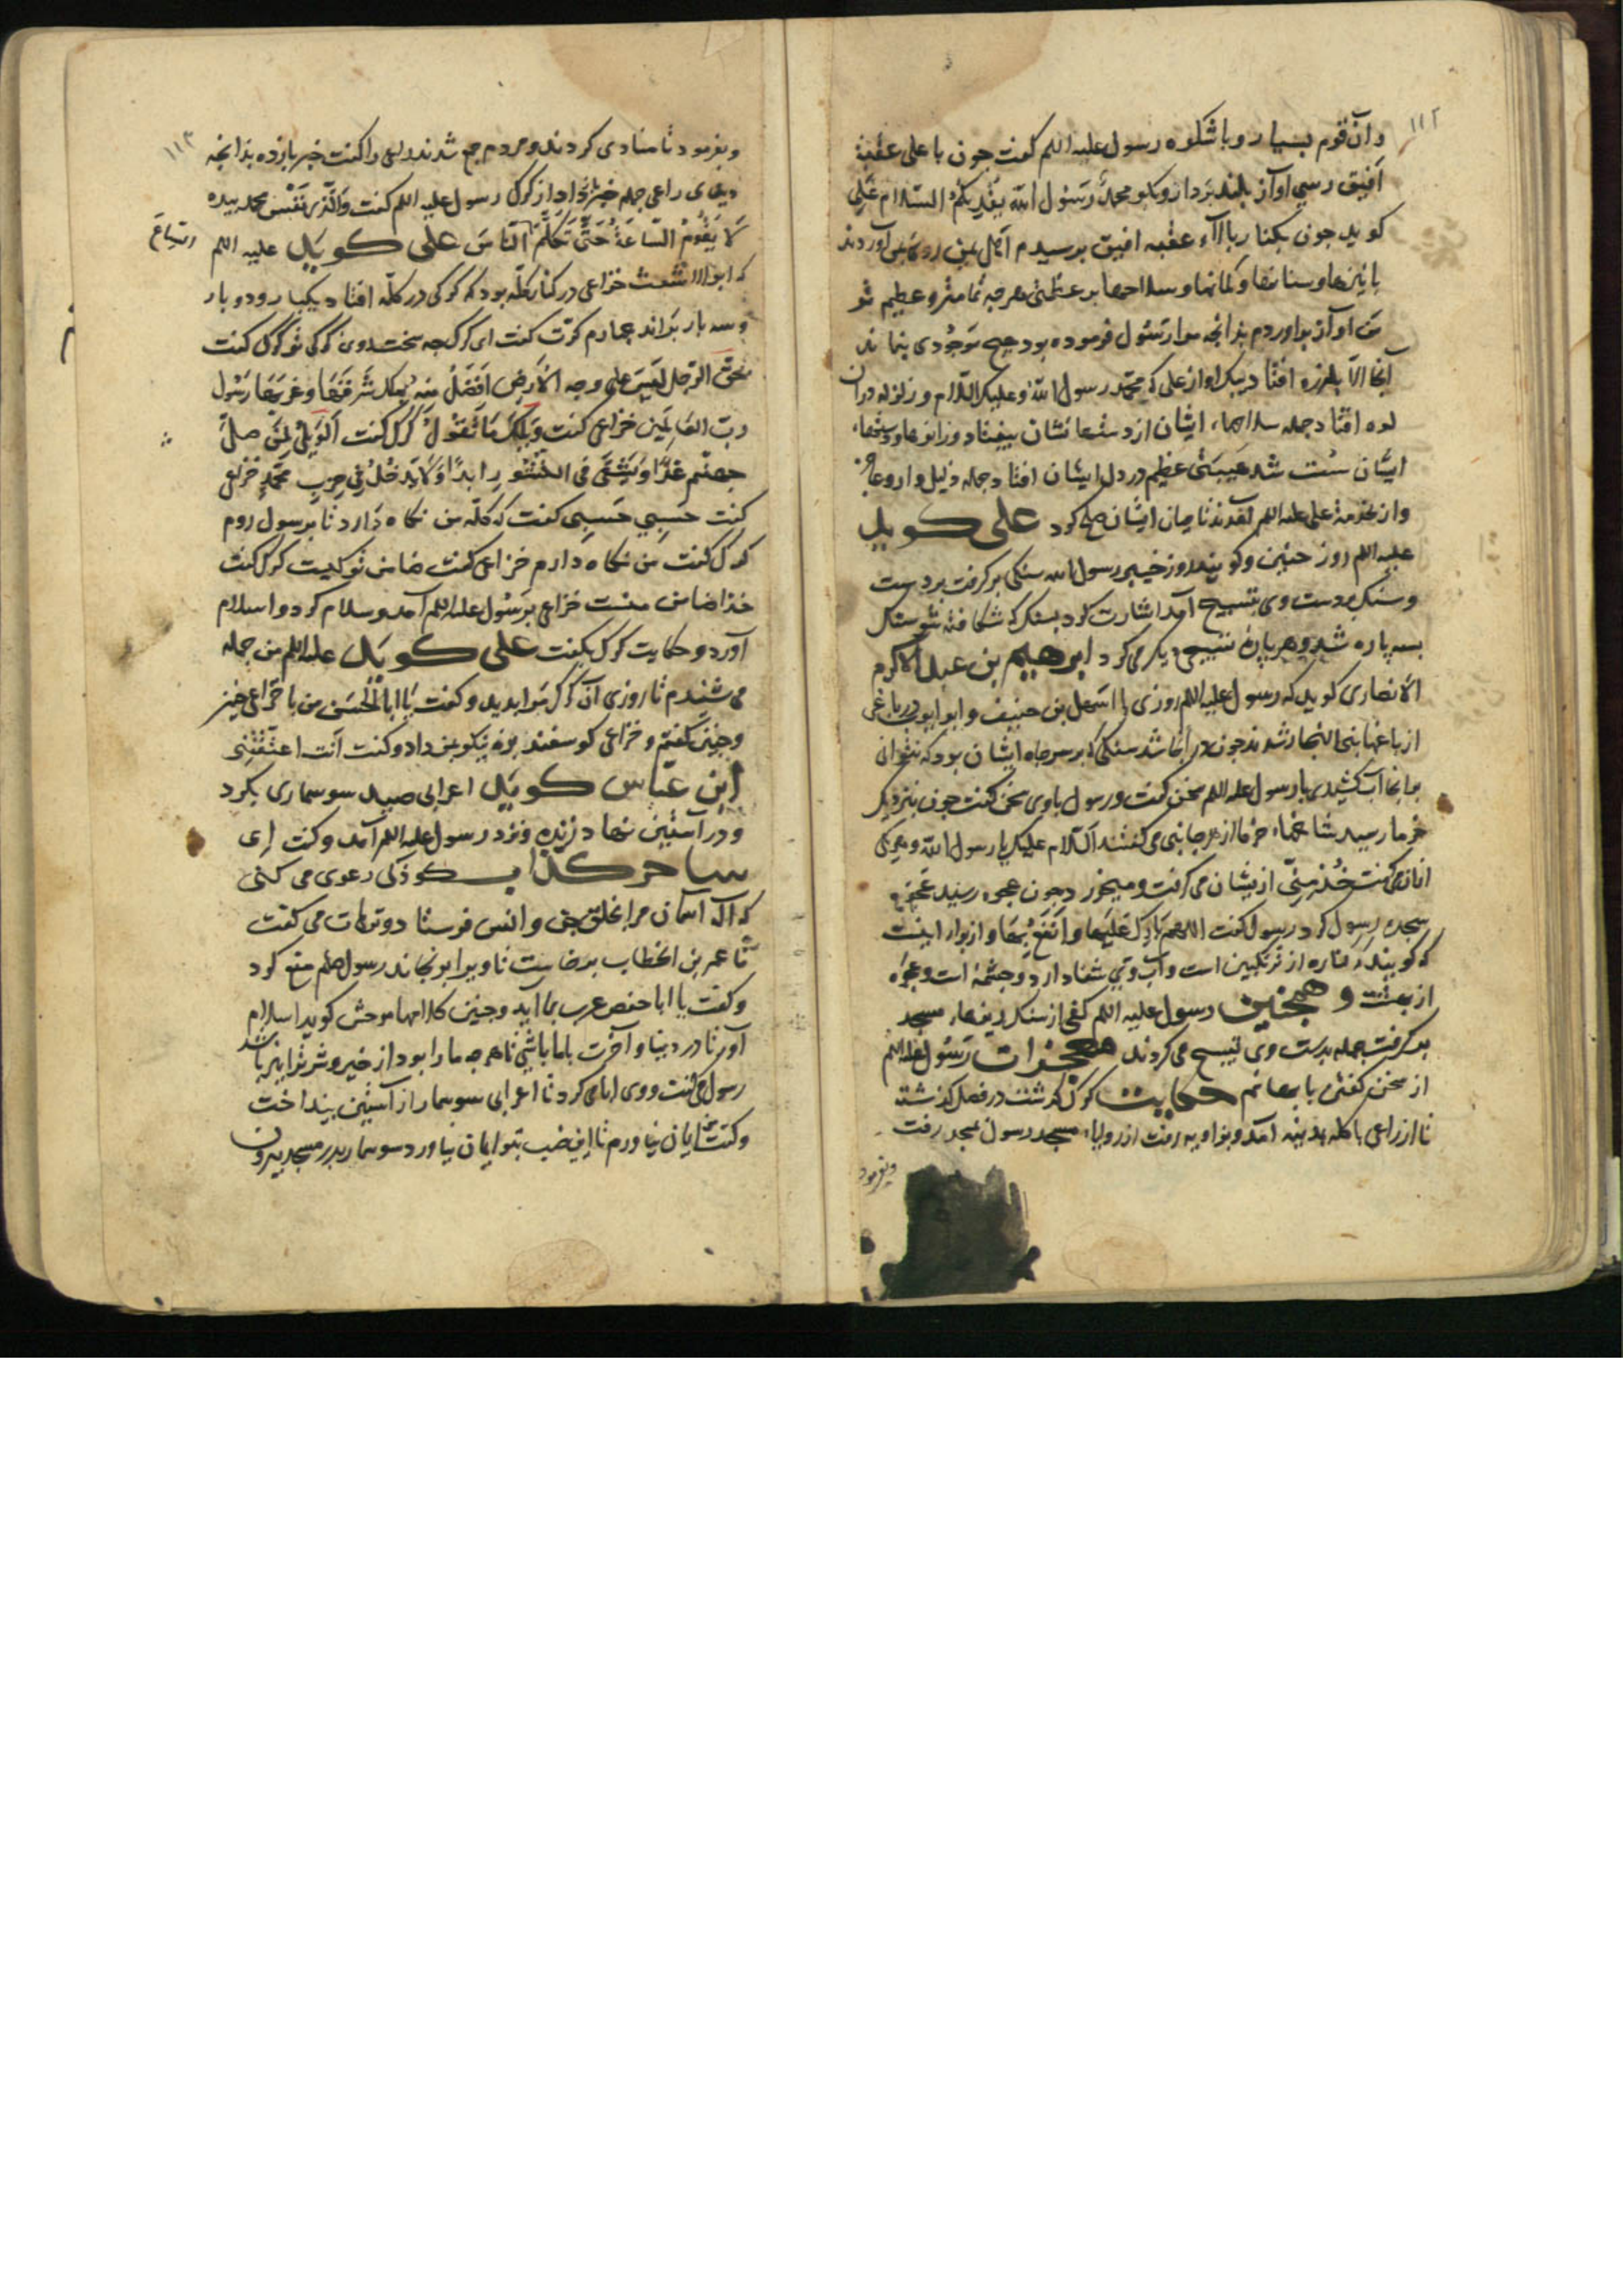 ۱۱۲
وآن قوم بسیار و باشکوه رسول علیه اللم کفت جون با علی عقبهٔ
افیق رسی اواز بلند بردار و بکو محمد رسول الله یقریکم السلام علی
کوید جون بکنار بالاء عقبه افیق برسیدم اهل یمن روی بمن آوردند
با نیزها و سنانها و کمانها و سلاحها بر عظمتی هرجه تمامتر و عظیم تر
من اواز براوردم بدانجه مرا رسول فرموده بود هیچ موجودی نماند
آنجا الا بلرزه افتاد بیک اواز علی که محمد رسول الله وعلیک السلام و زلزله دران
کوه افتاد جمله سلاحهاء ایشان از دستهاشان بیفتاد و زانوها و
ایشان سست شد هیبتی عظیم در دل ایشان افتاد جمله ذلیل وار
و از بخدمة علی علیه اللم آمدند تا میان ایشان صلح کرد علی کوید
علیه اللم روز حنین و کویند روز خیبر رسول الله سنکی برکرفت بر دست
و سنک بر دست وی تسبیح آمد اشارت کرد بسنک که شکافته شو سنک
بسه پاره شد و هر پارهٔ تسبیحی دیکر می کرد ابرهیم بن عبد الاکرم
الانصاری کوید که رسول علیه اللم روزی با اسمعیل بن حنیف و ابو ایوب در باغی
از باغها بنی النجار شدند جون در انجا شد سنکی که بر سر جاه ایشان بود که
بدانجا آب کشیدی با رسول علیه اللم سخن کفت و رسول باوی سخن کفت جون بنزدیک
خرما رسید شاخهاء خرما از هر جانبی می کفتند السلام علیک یا رسول الله و هر یکی
ازان می کفت خذ منی از یشان می کرفت و میخورد جون بعجوه رسید عجوه
سجده رسول کرد رسول کفت اللهم بارک علیها وانفع بها و ازبرا اینست
که کویند کماة از ترنکبین است و آب وی شفا دارد و جشمهٔ است و عجوة
از بهشت و همجنین رسول علیه اللم کفی از سنک ریزهاء مسجد
برکرفت جمله بدست وی تسبیح می کردند معجزات رسول علیه اللم
از سخن کفتن با بهائم حکایت کرک کذشت در فصل کذشته
تا از راعی با کله بمدینه آمد و بزاویه رفت از زوایاء مسجد رسول بمسجد رفت
وبفرمود
۱۱۳
وبفرمود تا منادی کردند و مردم جمع شدند راعی را کفت خبر بازده بدانجه
دیدی راعی جمله خبر باز داد از کرک رسول علیه اللم کفت والذی نفس محمد بیده
لا یقوم الساعة حتی تکلم السباع الناس علی کوید علیه اللم
که ابو الاشعث خزاعی در کنار کله بود که کرکی در کله افتاد یکبار و دو بار
و سه بار براند جهارم کرت کفت ای کرک جه سخت روی کرکی تو کرک کفت
بحق الرجل لیس علی وجه الارض افضل منه یملک شرقها وغربها رسول
رب العالمین خزاعی کفت ویلک ما تقول کرک کفت الویل لمن صلی
جهنم غدا ویشقی فی النشور ابدا ولا یدخل فی حزب محمد خزاعی
کفت حسبی حسبی کفت که کله من نکاه دارد تا بر رسول روم
کرک کفت من نکاه دارم خزاعی کفت ضامن تو کیست کرک کفت
خدا ضامن منست خزاعی بر رسول علیه اللم آمد و سلام کرد و اسلام
آورد و حکایت کرک بکفت علی کوید علیه اللم من جمله
می شنیدم تا روزی آن کرک مرا بدید و کفت یا ابا الحسن من با خزاعی جنین
و جنین کفتم و خزاعی کوسفند بره نیکو بمن داد و کفت انت اعتقتنی
ابن عباس کوید اعرابی صید سوسماری بکرد
و در آستین نهاد زنده و نزد رسول علیه اللم آمد و کفت ای
ساحر کذاب کوذکی دعوی می کنی
که اله اسمان مرا بخلق جن و انس فرستاد و ترهات می کفت
تا عمر بن الخطاب برخاست تا ویرا برنجاند رسول صلم منع کرد
و کفت یا ابا حفص عرب بما اید و جنین کلامها موحش کوید اسلام
آور تا در دنیا و آخرت با ما باشی تا هرجه ما را بود از خیر و شر ترا نیز باشد
رسول می کفت و وی ابا می کرد تا اعرابی سوسمار از آستین بینداخت
و کفت من ایمان نیاورم تا این ضب بتو ایمان نیاورد سوسمار بدر مسجد بیرون